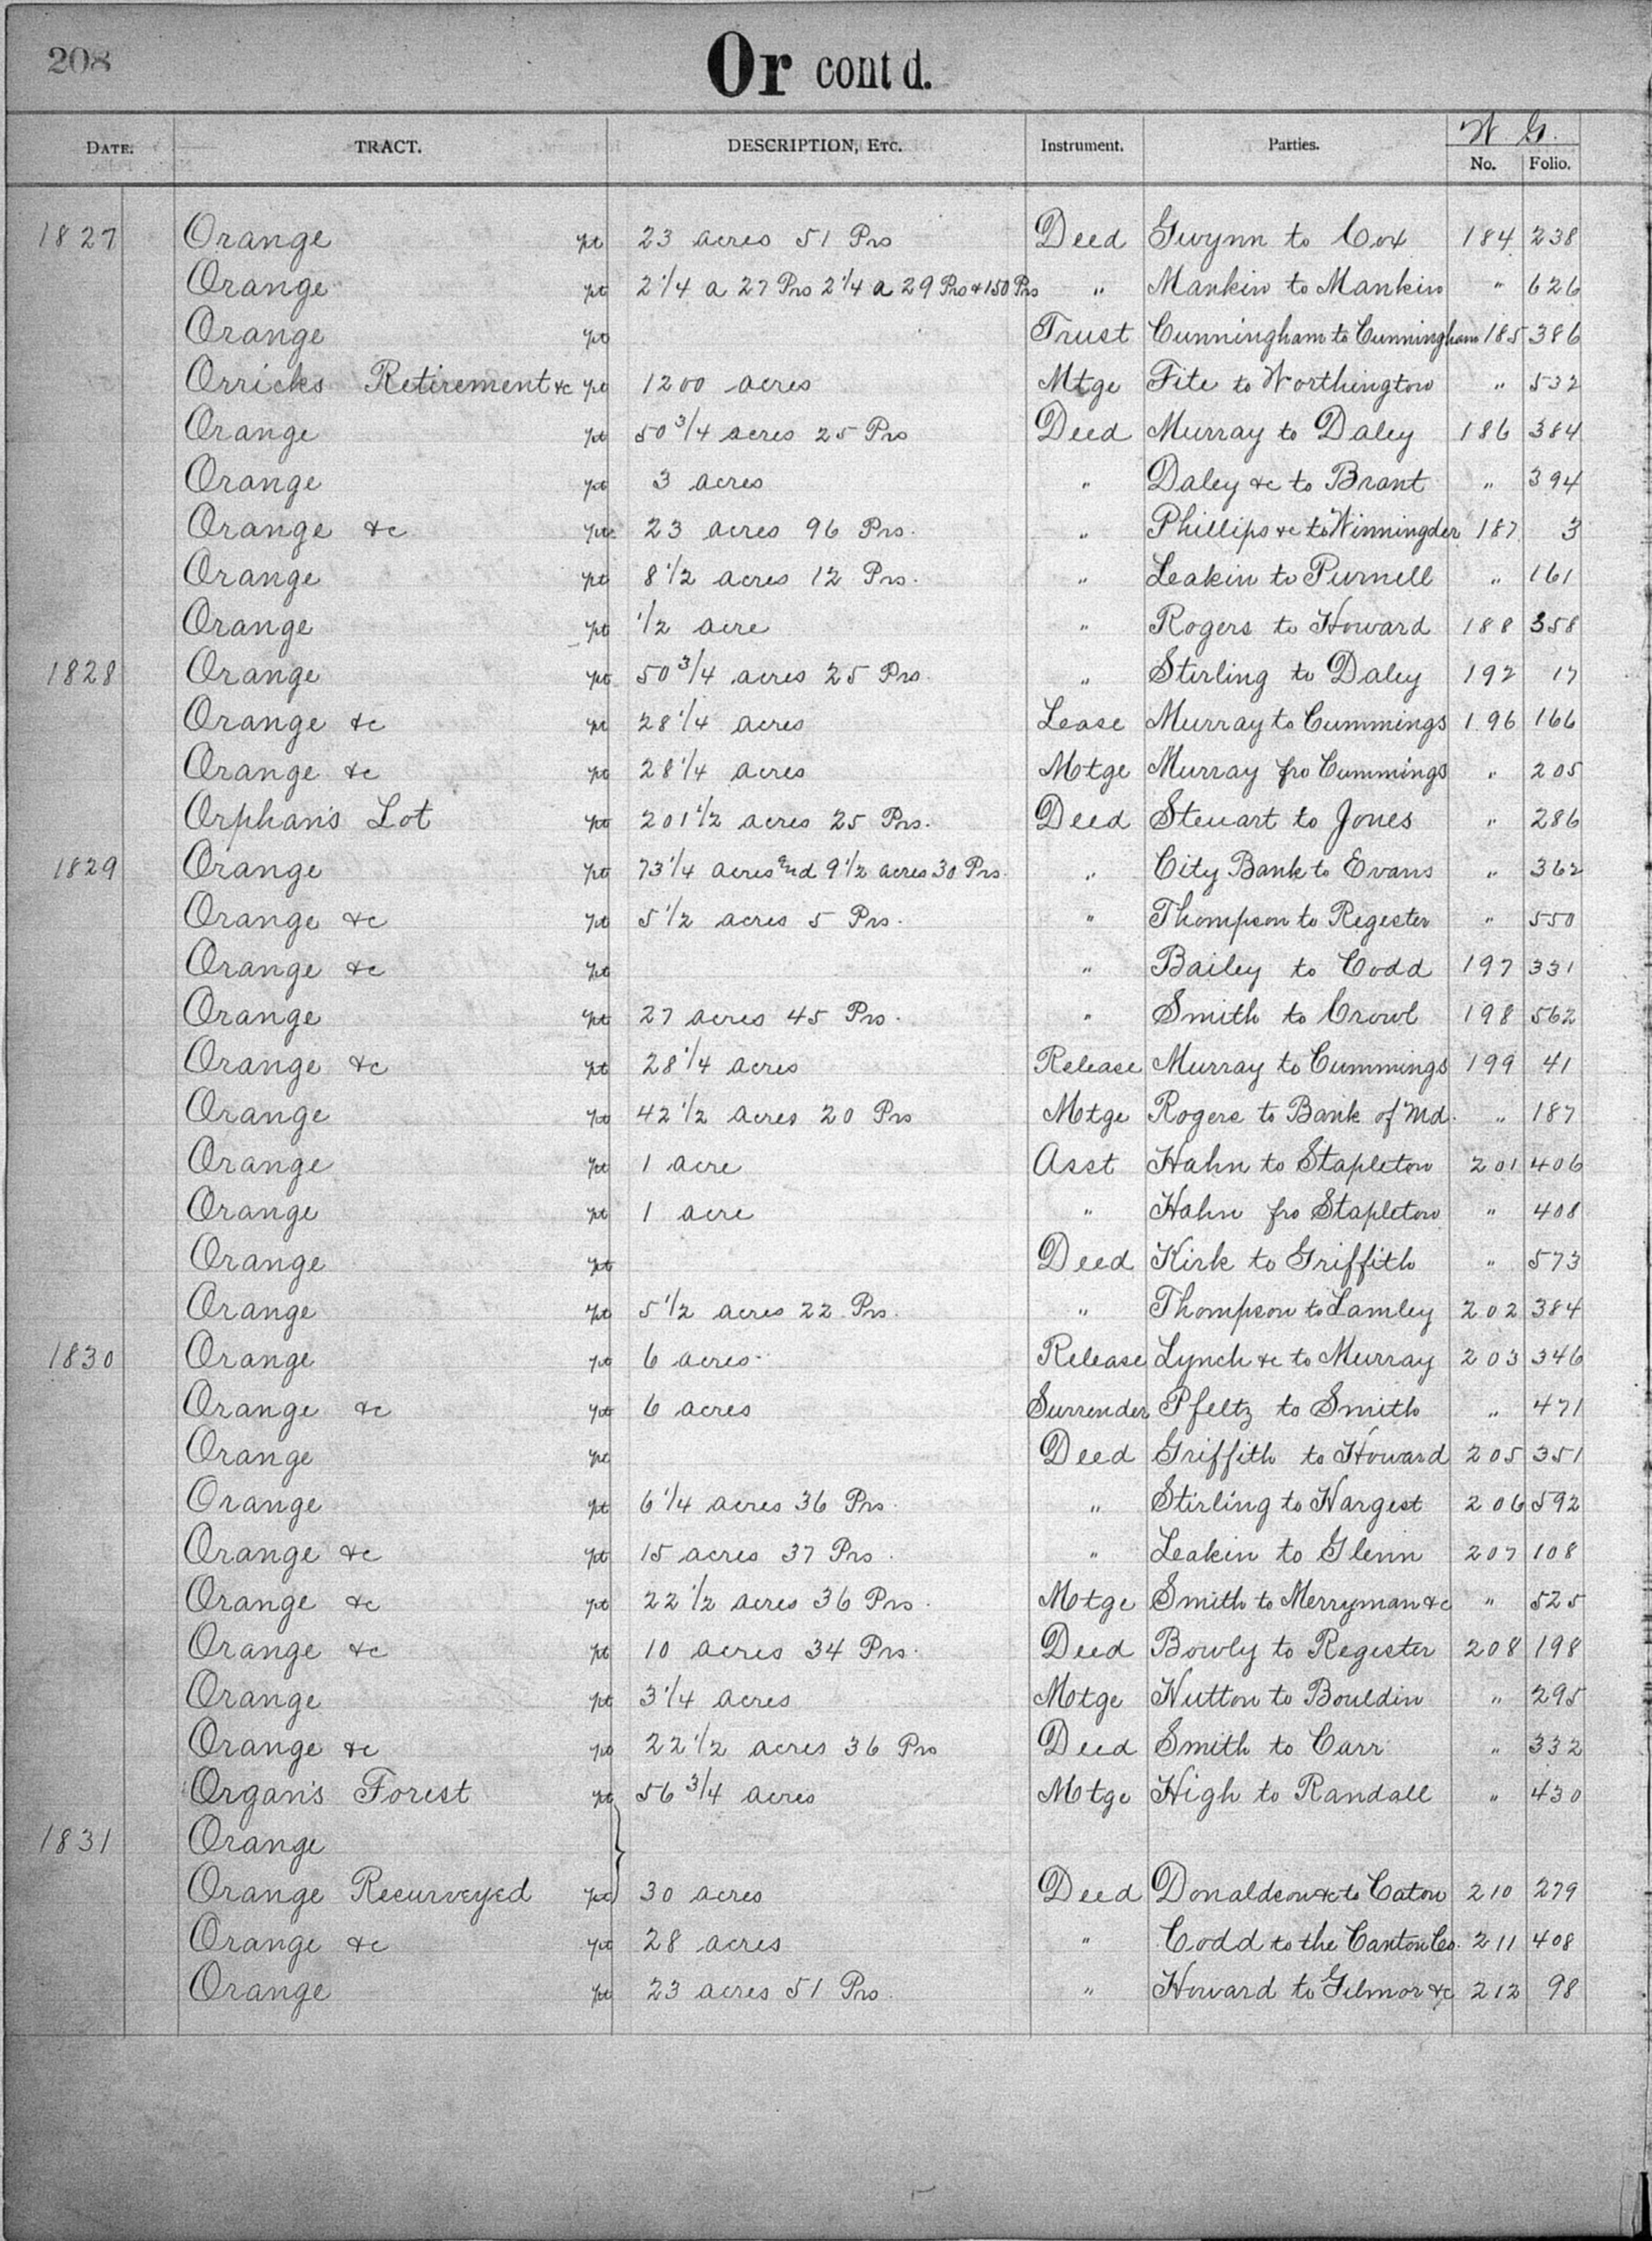 208
Or cont d.
W G.
DATE. TRACT. DESCRIPTION, ETC. Instrument. Parties. No. Folio.
1827 Orange pt 23 acres 51 Prs Deed Gwynn to Cox 184 238
Orange pt 2 1/4 a 27 Prs 2 1/4 a 29 Prs & 150 Prs " Mankin to Mankin " 626
Orange pt Trust Cunningham to Cunningham 185 386
Orricks Retirement &c pt 1200 acres Mtge Fite to Worthington " 532
Orange pt 50 3/4 acres 25 Prs Deed Murray to Daley 186 384
Orange pt 3 acres " Daley &c to Brant " 394
Orange &c pt 23 acres 96 Prs. " Phillips &c to Winningder 187 3
Orange pt 8 1/2 acres 12 Prs. " Leakin to Purnell " 161
Orange pt 1/2 acre " Rogers to Howard 188 358
1828 Orange pt 50 3/4 acres 25 Prs. " Stirling to Daley 192 17
Orange &c pt 28 1/4 acres Lease Murray to Cummings 196 166
Orange &c pt 28 1/4 acres Motge Murray fro Cummings " 205
Orphan's Lot pt 201 1/2 acres 25 Prs. Deed Steuart to Jones " 286
1829 Orange pt 73 1/4 acres and 9 1/2 acres 30 Prs. " City Bank to Evans " 362
Orange &c pt 5 1/2 acres 5 Prs. " Thompson to Regester " 550
Orange &c pt " Bailey to Codd 197 331
Orange pt 27 acres 45 Prs. " Smith to Crowl 198 562
Orange &c pt 28 1/4 acres Release Murray to Cummings 199 41
Orange pt 42 1/2 acres 20 Prs Motge Rogers to Bank of Md. " 187
Orange pt 1 acre Asst Hahn to Stapleton 201 406
Orange pt 1 acre " Hahn fro Stapleton " 408
Orange pt Deed Kirk to Griffith " 573
Orange pt 5 1/2 acres 22 Prs. " Thompson to Lamley 202 384
1830 Orange pt 6 acres Release Lynch &c to Murray 203 346
Orange &c pt 6 acres Surrender Pfeltz to Smith " 471
Orange pt Deed Griffith to Howard 205 351
Orange pt 6 1/4 acres 36 Prs. " Stirling to Hargest 206 592
Orange &c pt 15 acres 37 Prs. " Leakin to Glenn 207 108
Orange &c pt 22 1/2 acres 36 Prs. Motge Smith to Merryman &c " 525
Orange &c pt 10 acres 34 Prs. Deed Bowly to Register 208 198
Orange pt 3 1/4 acres Motge Hutton to Bouldin " 295
Orange &c pt 22 1/2 acres 36 Prs Deed Smith to Carr " 332
Organ's Forest pt 56 3/4 acres Motge High to Randall " 430
1831 Orange
Orange Resurveyed pt 30 acres Deed Donaldson &c to Caton 210 279
Orange &c pt 28 acres " Codd to the Canton Co. 211 408
Orange pt 23 acres 51 Prs. " Howard to Gilmor &c 212 98